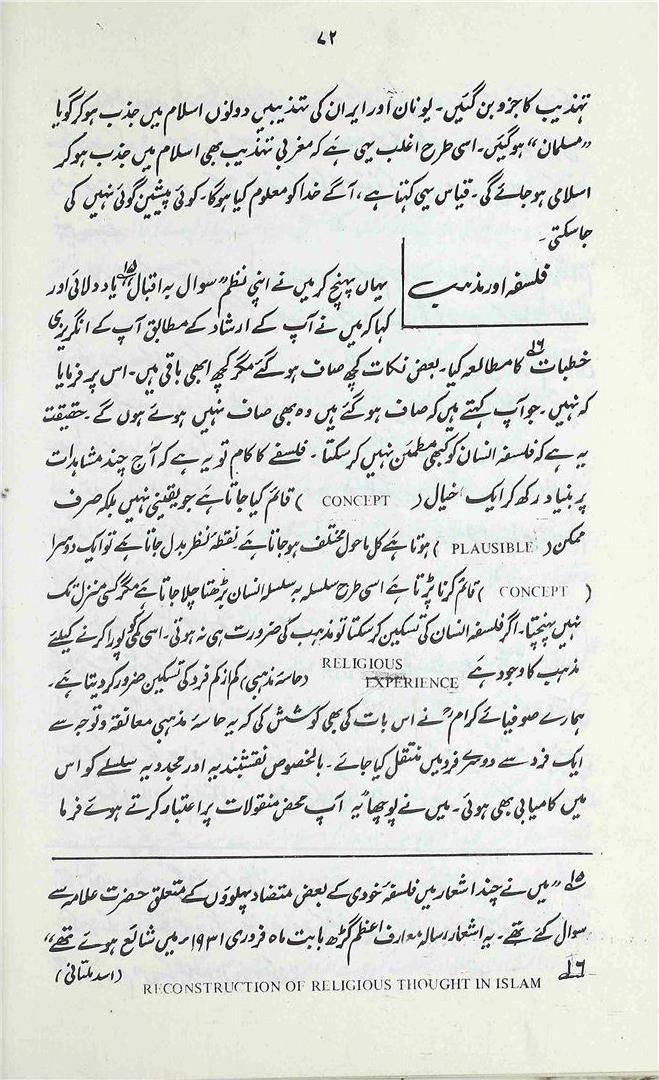 ۷۲
تہذیب کا جزو بن گئیں۔ یونان اور ایران کی تہذیبیں دونوں اسلام میں جذب ہو کر گویا
”مسلمان“ ہوگئیں۔ اسی طرح اغلب یہی ہے کہ مغربی تہذیب بھی اسلام میں جذب ہو کر
اسلامی ہو جائے گی۔ قیاس یہی کہتا ہے، آگے خدا کو معلوم کیا ہوگا۔ کوئی پیشین گوئی نہیں کی
جاسکتی۔
فلسفہ اور مذہب
یہاں پہنچ کر میں نے اپنی نظم ”سوال بہ اقبال“ ۱۵؎ یاد دلائی اور
کہا کہ میں نے آپ کے ارشاد کے مطابق آپ کے انگریزی
خطبات ۱۶؎ کا مطالعہ کیا۔ بعض نکات کچھ صاف ہو گئے مگر کچھ ابھی باقی ہیں۔ اس پر فرمایا
کہ نہیں۔ جو آپ کہتے ہیں کہ صاف ہو گئے ہیں وہ بھی صاف نہیں ہوئے ہوں گے۔ حقیقت
یہ ہے کہ فلسفہ انسان کو کبھی مطمئن نہیں کر سکتا۔ فلسفے کا کام تو یہ ہے کہ آج چند مشاہدات
پر بنیاد رکھ کر ایک ’خیال ( CONCEPT ) قائم کیا جاتا ہے جو یقینی نہیں بلکہ صرف
ممکن ( PLAUSIBLE ) ہوتا ہے کل ماحول مختلف ہو جاتا ہے۔ نقطۂ نظر بدل جاتا ہے تو ایک دوسرا
( CONCEPT ) قائم کرنا پڑتا ہے اسی طرح سلسلہ بہ سلسلہ انسان بڑھتا چلا جاتا ہے مگر کسی منزل تک
نہیں پہنچتا۔ اگر فلسفہ انسان کی تسکین کر سکتا تو مذہب کی ضرورت ہی نہ ہوتی۔ اسی کمی کو پورا کرنے کیلئے
مذہب کا وجود ہے RELIGIOUS EXPERIENCE (حاسۂ مذہبی) کم از کم فرد کی تسکین ضرور کر دیتا ہے۔
ہمارے صوفیائے کرامؒ نے اس بات کی بھی کوشش کی کہ یہ حاسۂ مذہبی معانقہ و توجہ سے
ایک فرد سے دوسرے فرد میں منتقل کیا جائے۔ بالخصوص نقشبندیہ اور مجددیہ سلسلے کو اس
میں کامیابی بھی ہوئی۔ میں نے پوچھا ”یہ آپ محض منقولات پر اعتبار کرتے ہوئے فرما
۱۵؎ ”میں نے چند اشعار میں فلسفۂ خودی کے بعض متضاد پہلوؤں کے متعلق حضرت علامہ سے
سوال کئے تھے۔ یہ اشعار رسالہ معارف اعظم گڑھ بابت ماہ فروری ۱۹۳۱ء میں شائع ہوئے تھے“
(اسد ملتانی)
۱۶؎ RECONSTRUCTION OF RELIGIOUS THOUGHT IN ISLAM